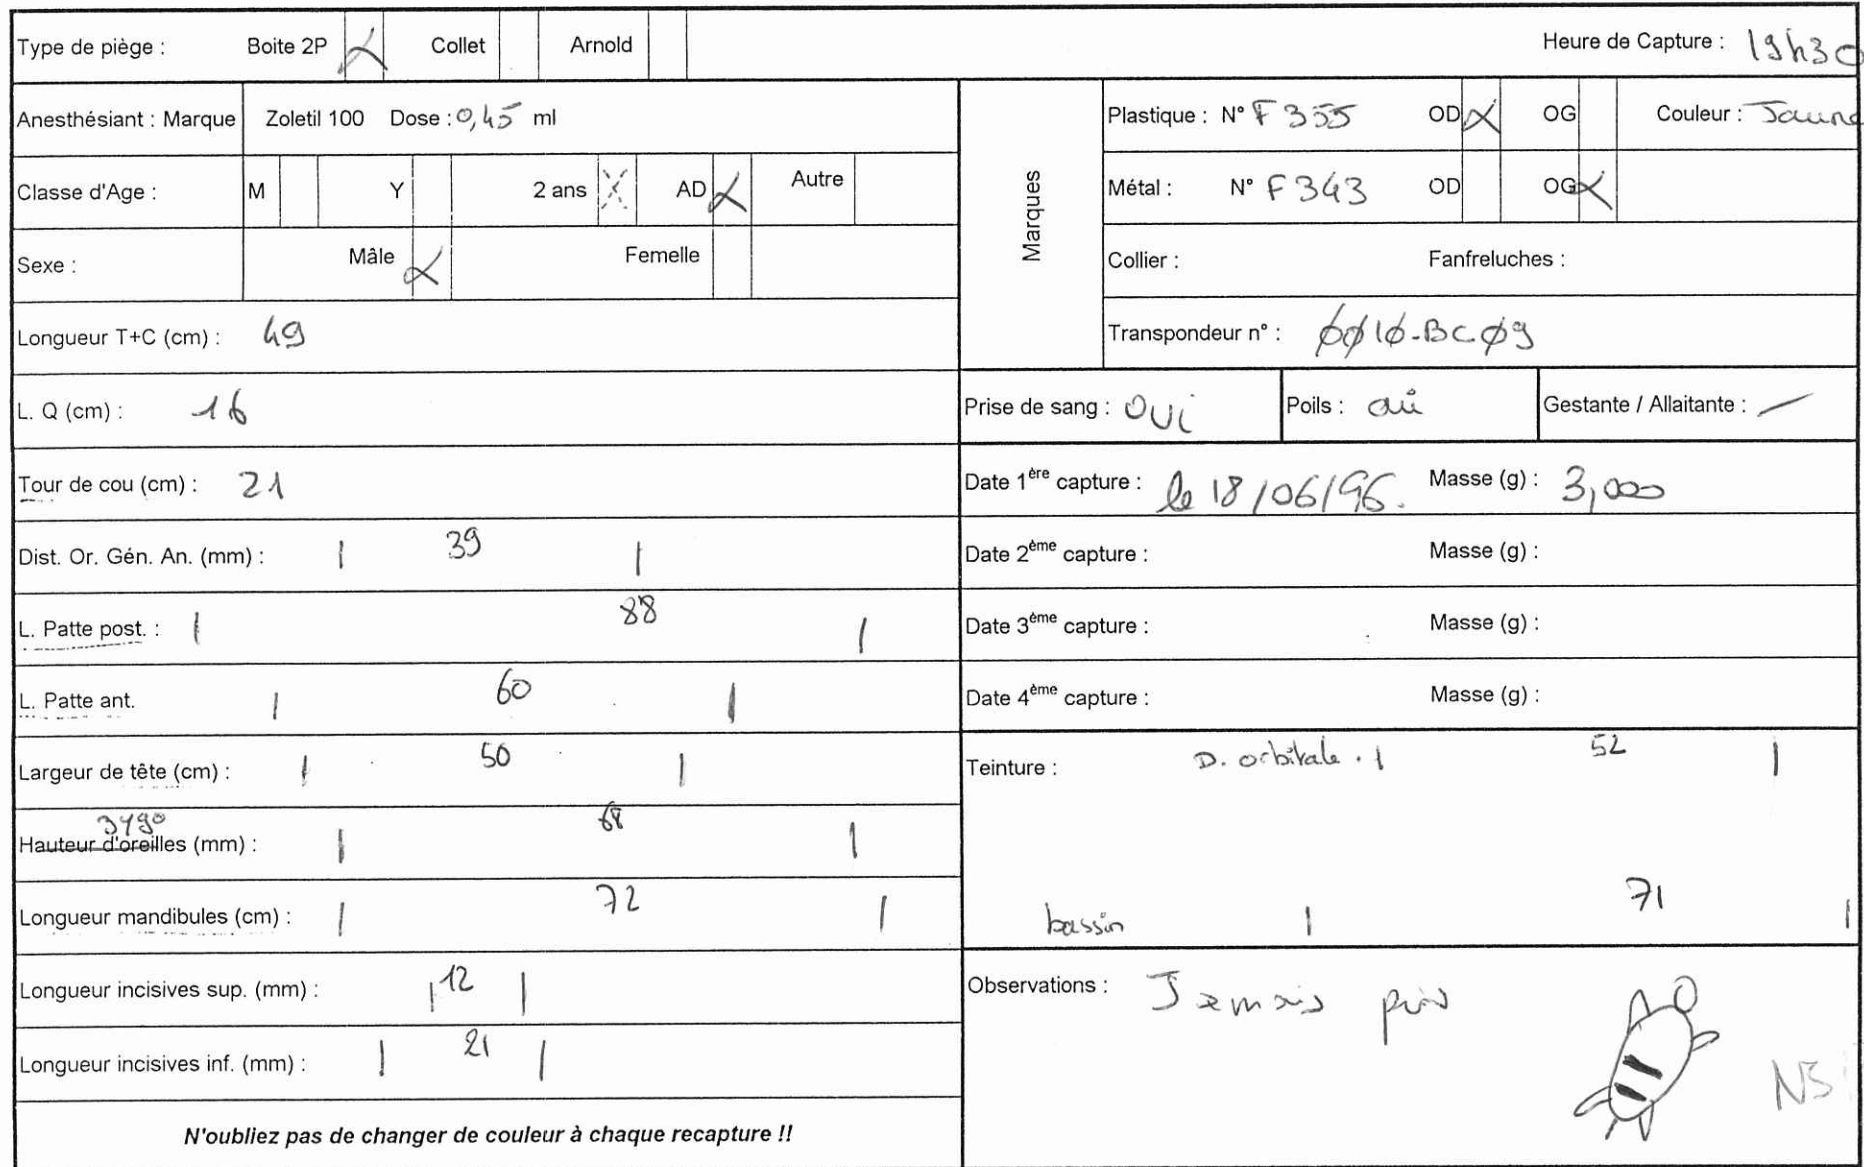 Type de piège : Boite 2P X Collet Arnold Heure de Capture : 19h30
Anesthésiant : Marque Zoletil 100 Dose : 0,45 ml
Classe d'Age : M Y 2 ans X AD X Autre
Sexe : Mâle X Femelle
Longueur T+C (cm) : 49
L. Q (cm) : 16
Tour de cou (cm) : 21
Dist. Or. Gén. An. (mm) : 39
L. Patte post. : 88
L. Patte ant. 60
Largeur de tête (cm) : 50
Hauteur d'oreilles (mm) : 68
Longueur mandibules (cm) : 72
Longueur incisives sup. (mm) : 12
Longueur incisives inf. (mm) : 21
N'oubliez pas de changer de couleur à chaque recapture !!
Marques
Plastique : N° F 355 OD X OG Couleur : Jaune
Métal : N° F 343 OD OG X
Collier : Fanfreluches :
Transpondeur n° : 0010-BC09
Prise de sang : OUi Poils : oui Gestante / Allaitante : —
Date 1ère capture : le 18/06/96. Masse (g) : 3,000
Date 2ème capture : Masse (g) :
Date 3ème capture : Masse (g) :
Date 4ème capture : Masse (g) :
Teinture : D. orbitale . 52
bassin 71
Observations : Jamais pris